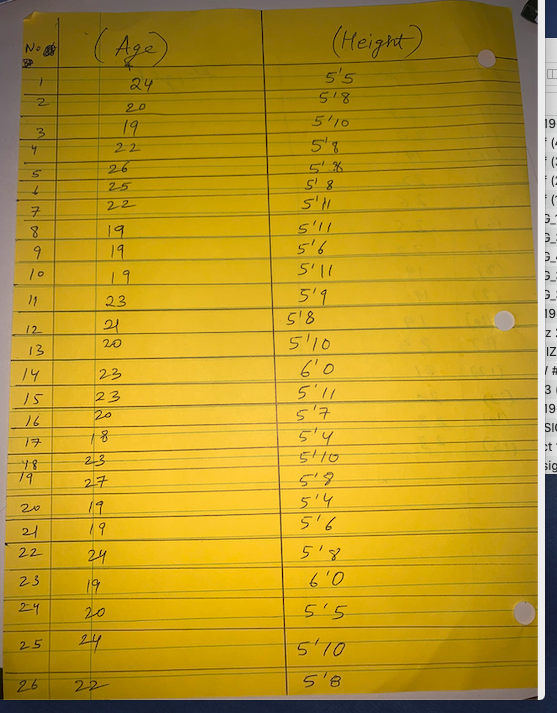 No (Age) (Height)
1 24 5'5
2 20 5'8
3 19 5'10
4 22 5'8
5 26 5'8
6 25 5'8
7 22 5'11
8 19 5'11
9 19 5'6
10 19 5'11
11 23 5'9
12 21 5'8
13 20 5'10
14 23 6'0
15 23 5'11
16 20 5'7
17 18 5'4
18 23 5'10
19 27 5'8
20 19 5'4
21 19 5'6
22 24 5'8
23 19 6'0
24 20 5'5
25 24 5'10
26 22 5'8